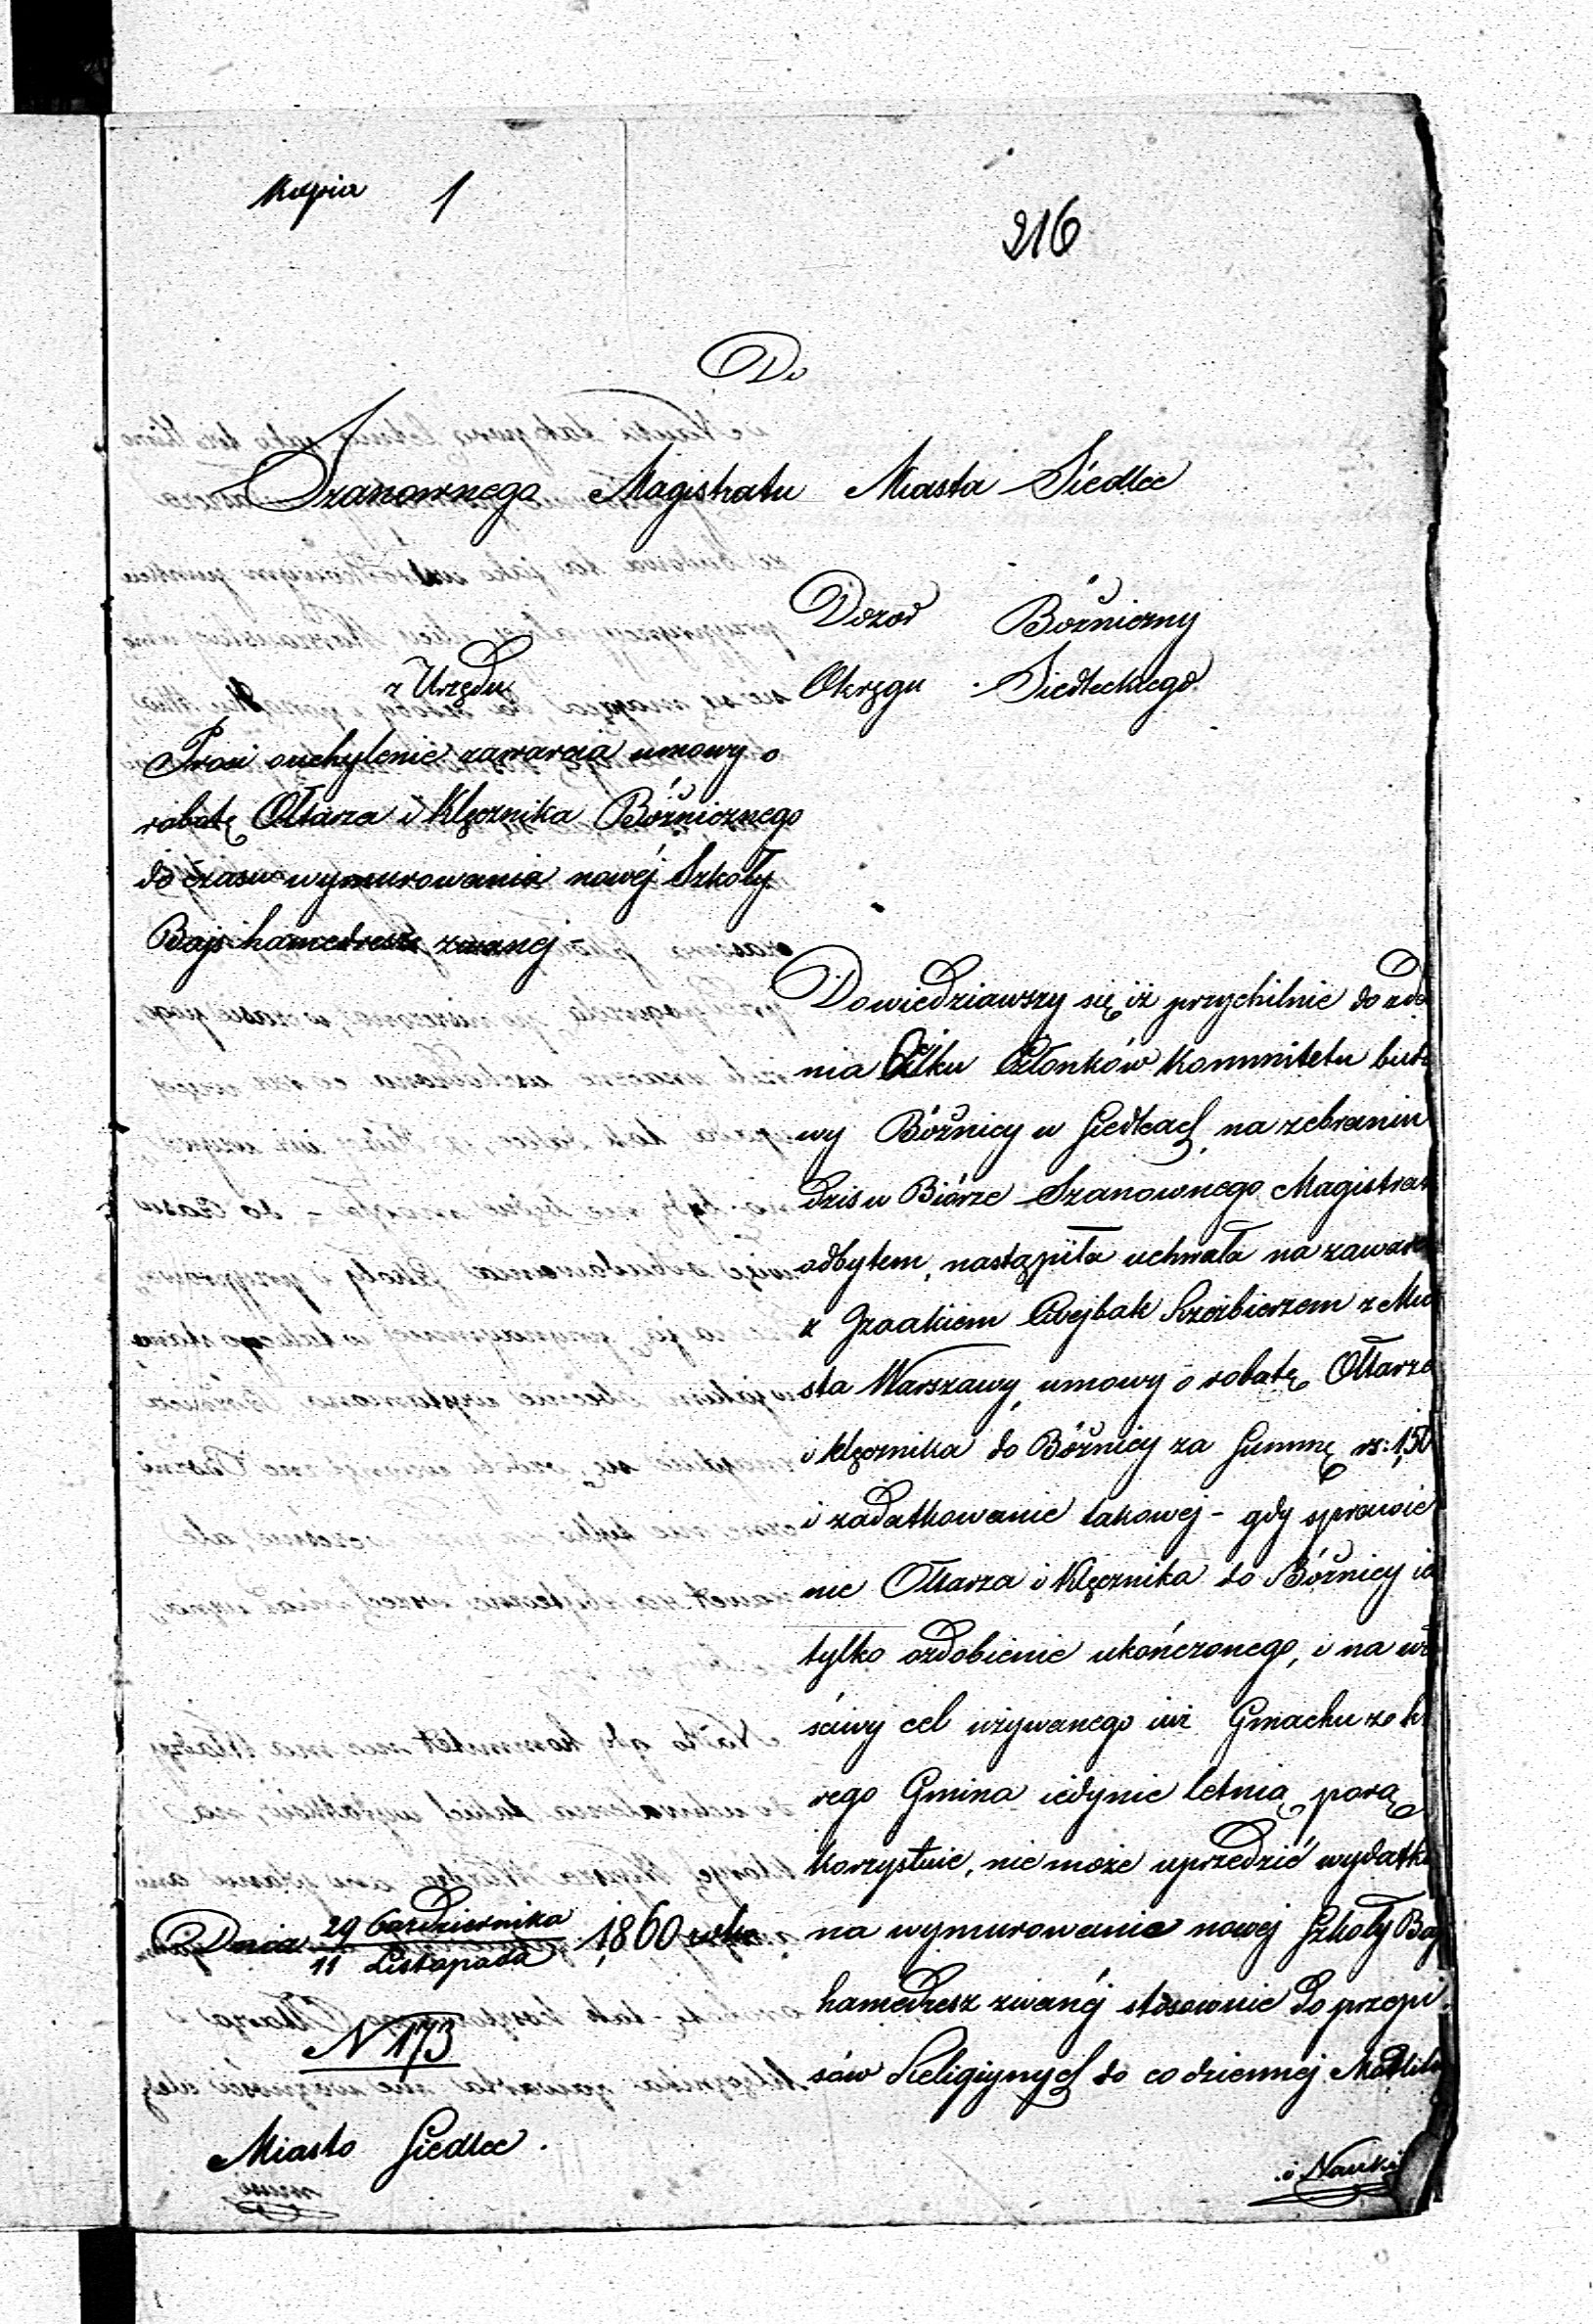 Kopia 1
216
Do
Szanownego Magistratu Miasta Siedlec
Dozór Bóżniczny
Okręgu Siedleckiego
z Urzędu
Prosi o uchylenie zawarcia umowy o
robotę Ołtarza i Klęcznika Bóżnicznego
do czasu wymurowania nowéj Szkoły
Bajs hamedresz zwanej -
Dowiedziawszy się iż przychilnie do żąda
nia kilku Członków Kommitetu budo
wy Bóżnicy w Siedlcach, na zebraniu
dziś w Biórze Szanownego Magistrat
odbytem, nastąpiła uchwała na zawarc
z Izaakiem Cwejbak Snycerzem z Mia
sta Warszawy, umowy o robotę Ołtarza
i klęcznika do Bóżnicy za Summę rs: 150
i zadatkowanie takowej - gdy sprawie
nie Ołtarza i Klęcznika do Bóżnicy ia
tylko ozdobienie ukończonego, i na wła
sciwy cel używanego iuż Gmachu z któ
rego Gmina iedynie letnią porą
korzystuie, nie może uprzedzić wydatku
na wymurowania nowéj Szkoły Bajs
hamedresz zwanéj stósownie do przepi
sów Religiynych do codziennéj Modlitw
i Nauki
Dnia 29 Października / 11 Listopada 1860 roku
N 173
Miasto Siedlec.